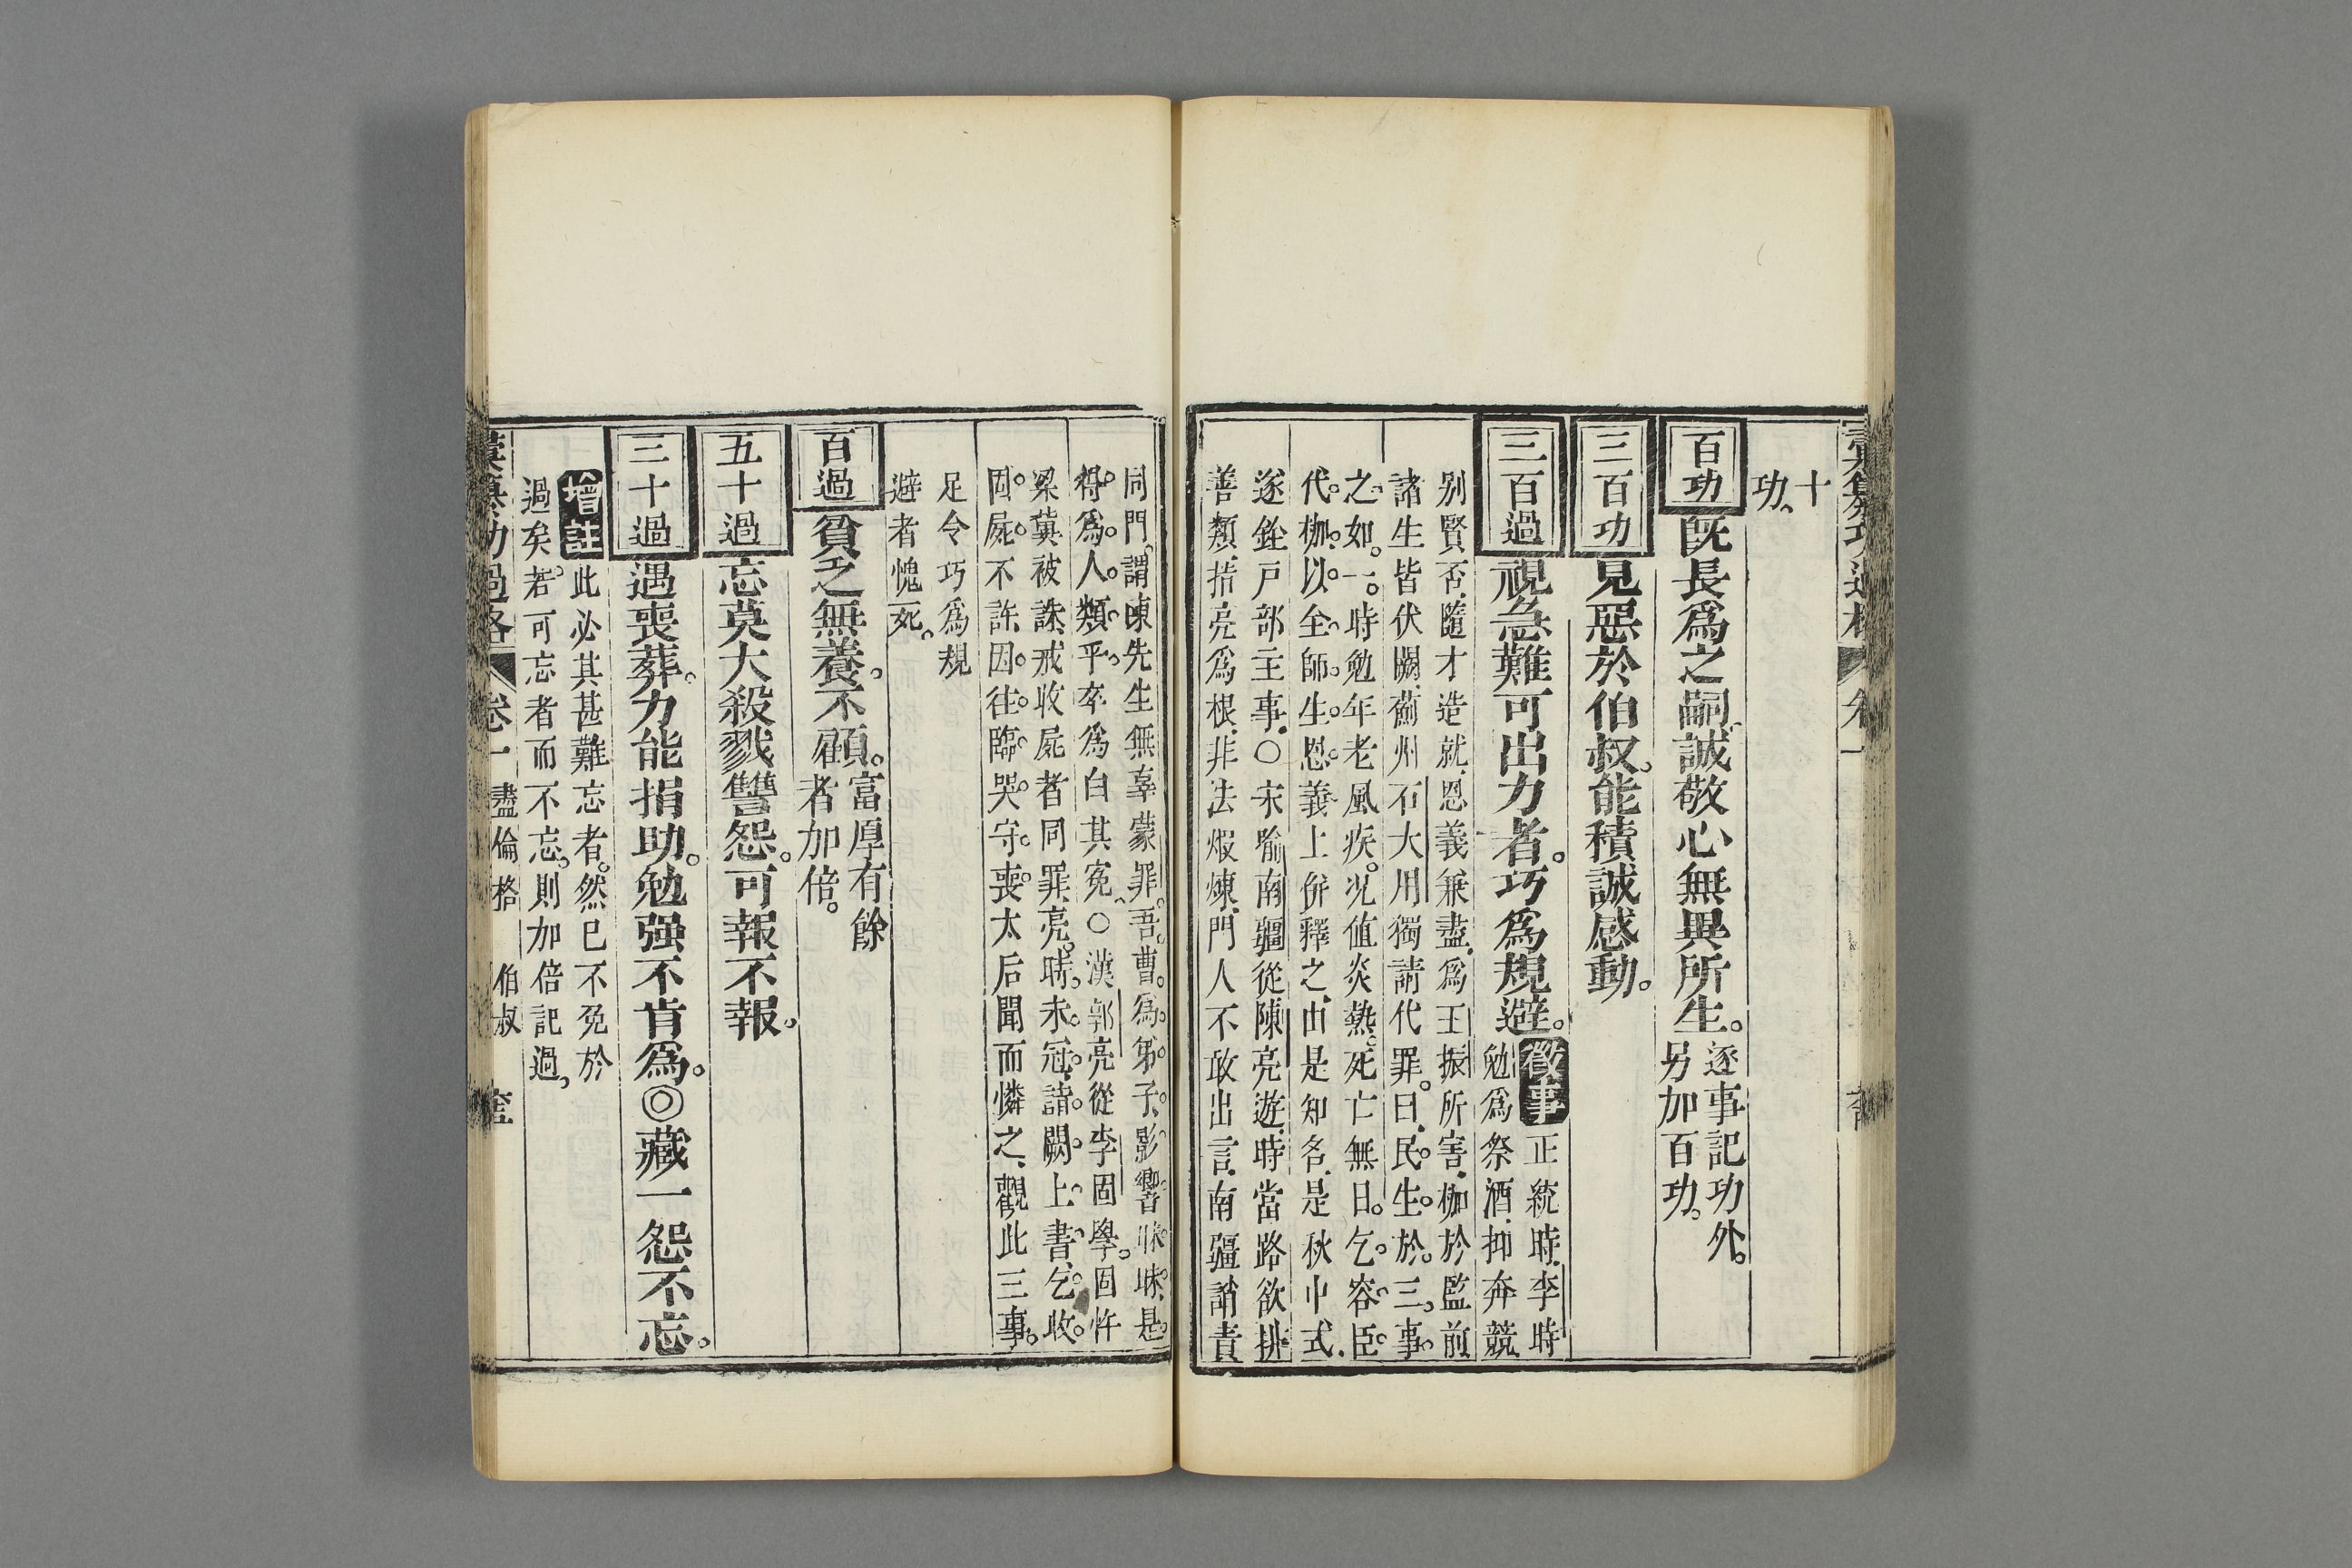 十
功、
百功 既長爲之嗣。誠敬心無異所生。逐事記功外。
另加百功。
三百功 見惡於伯叔。能積誠感動。
三百過 視急難可出力者。巧爲規避。徵事 正統時、李時
勉爲祭酒、抑奔競
别賢否、隨才造就、恩義兼盡、爲王振所害、枷於監前
諸生皆伏闕、薊州石大用獨請代罪。曰、民生於三、事
之如一。時勉年老風疾。況值炎熱。死亡無日。乞容臣
代枷、以全師生恩義、上併釋之、由是知名、是秋中式、
逐銓戸部主事、○宋喻南疆從陳亮遊、時當路欲排
善類、指亮爲根、非法煅煉、門人不敢出言、南疆誚責
同門、謂陳先生無辜蒙罪。吾曹爲弟子、影響昧昧、是
得爲人類乎、卒爲白其寃、○漢郭亮從李固學。固忤
梁冀被誅、戒收屍者同罪、亮時未冠、詣闕上書、乞收
固屍不許、因往臨哭守喪、太后聞而憐之、觀此三事。
足令巧爲規
避者愧死。
百過 貧乏無養。不顧。富厚有餘
者加倍。
五十過 忘莫大殺戮讐怨。可報不報。
三十過 遇喪葬。力能捐助。勉强不肯爲。◎藏一怨不忘。
增註 此必其甚難忘者。然已不免於
過矣。若可忘者而不忘。則加倍記過。
功過格 卷一 盡倫格 伯叔